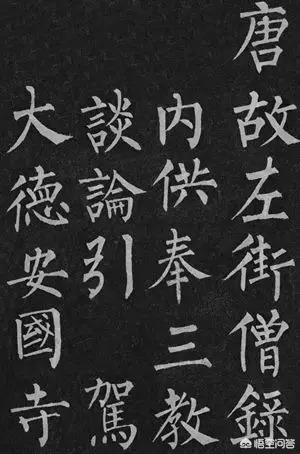 唐故左街僧錄
内供奉三教
談論引駕
大德安國寺
悟空问答